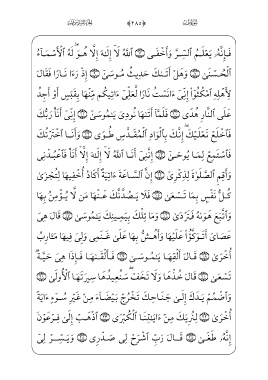 فَإِنَّهُۥ يَعْلَمُ ٱلسِّرَّ وَأَخْفَى ۝ ٱللَّهُ لَآ إِلَٰهَ إِلَّا هُوَ ۖ لَهُ ٱلْأَسْمَآءُ
ٱلْحُسْنَىٰ ۝ وَهَلْ أَتَىٰكَ حَدِيثُ مُوسَىٰٓ ۝ إِذْ رَءَا نَارًا فَقَالَ
لِأَهْلِهِ ٱمْكُثُوٓا۟ إِنِّىٓ ءَانَسْتُ نَارًا لَّعَلِّىٓ ءَاتِيكُم مِّنْهَا بِقَبَسٍ أَوْ أَجِدُ
عَلَى ٱلنَّارِ هُدًى ۝ فَلَمَّآ أَتَىٰهَا نُودِىَ يَٰمُوسَىٰٓ ۝ إِنِّىٓ أَنَا۠ رَبُّكَ
فَٱخْلَعْ نَعْلَيْكَ ۖ إِنَّكَ بِٱلْوَادِ ٱلْمُقَدَّسِ طُوًى ۝ وَأَنَا ٱخْتَرْتُكَ
فَٱسْتَمِعْ لِمَا يُوحَىٰٓ ۝ إِنَّنِىٓ أَنَا ٱللَّهُ لَآ إِلَٰهَ إِلَّآ أَنَا۠ فَٱعْبُدْنِى
وَأَقِمِ ٱلصَّلَوٰةَ لِذِكْرِىٓ ۝ إِنَّ ٱلسَّاعَةَ ءَاتِيَةٌ أَكَادُ أُخْفِيهَا لِتُجْزَىٰ
كُلُّ نَفْسٍۭ بِمَا تَسْعَىٰ ۝ فَلَا يَصُدَّنَّكَ عَنْهَا مَن لَّا يُؤْمِنُ بِهَا
وَٱتَّبَعَ هَوَىٰهُ فَتَرْدَىٰ ۝ وَمَا تِلْكَ بِيَمِينِكَ يَٰمُوسَىٰ ۝ قَالَ هِىَ
عَصَاىَ أَتَوَكَّؤُا۟ عَلَيْهَا وَأَهُشُّ بِهَا عَلَىٰ غَنَمِى وَلِىَ فِيهَا مَـَٔارِبُ
أُخْرَىٰ ۝ قَالَ أَلْقِهَا يَٰمُوسَىٰ ۝ فَأَلْقَىٰهَا فَإِذَا هِىَ حَيَّةٌ
تَسْعَىٰ ۝ قَالَ خُذْهَا وَلَا تَخَفْ ۖ سَنُعِيدُهَا سِيرَتَهَا ٱلْأُولَىٰ ۝
وَٱضْمُمْ يَدَكَ إِلَىٰ جَنَاحِكَ تَخْرُجْ بَيْضَآءَ مِنْ غَيْرِ سُوٓءٍ ءَايَةً
أُخْرَىٰ ۝ لِنُرِيَكَ مِنْ ءَايَٰتِنَا ٱلْكُبْرَى ۝ ٱذْهَبْ إِلَىٰ فِرْعَوْنَ
إِنَّهُۥ طَغَىٰ ۝ قَالَ رَبِّ ٱشْرَحْ لِى صَدْرِى ۝ وَيَسِّرْ لِىٓ